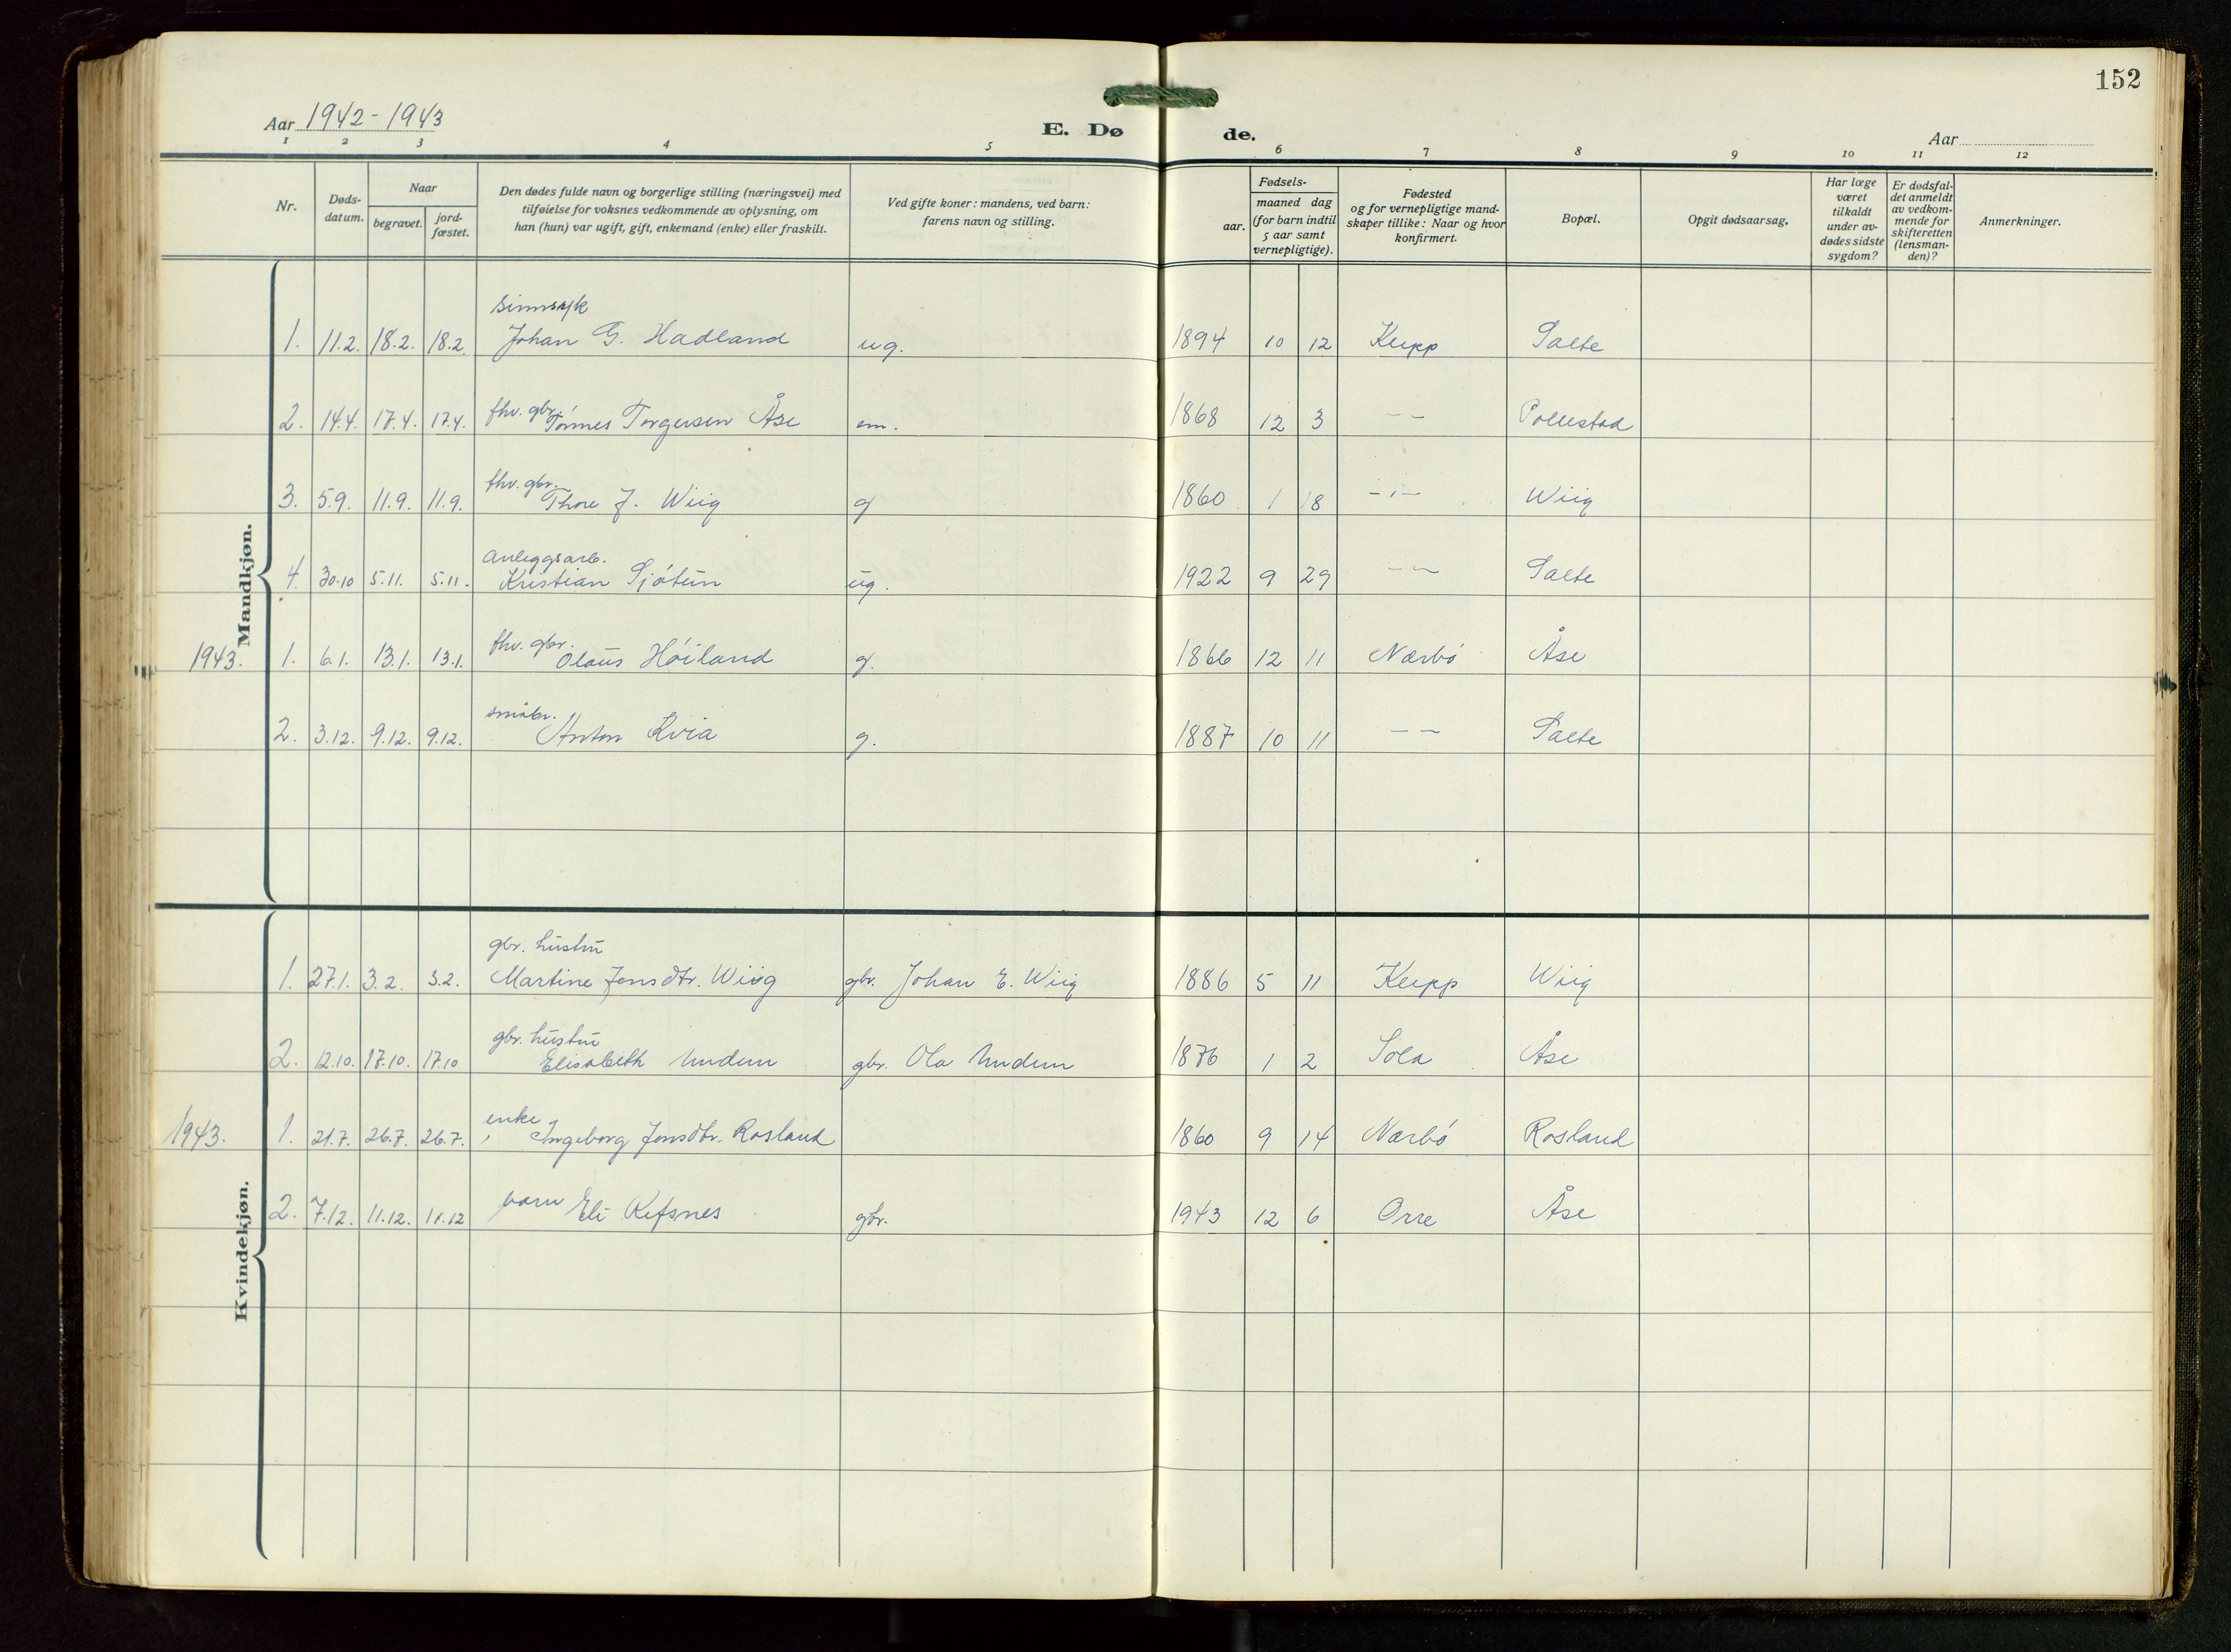 152
Aar 1942-1943
E. Dø de.
Aar
1 2 3 4 5 6 7 8 9 10 11 12
Nr.
Døds-
datum.
Naar
begravet.
jord-
fæstet.
Den dødes fulde navn og borgerlige stilling (næringsvei) med
tilføielse for voksnes vedkommende av oplysning, om
han (hun) var ugift, gift, enkemand (enke) eller fraskilt.
Ved gifte koner: mandens, ved barn:
farens navn og stilling.
Fødsels-
aar.
maaned dag
(for barn indtil
5 aar samt
vernepligtige).
Fødested
og for vernepligtige mand-
skaper tillike: Naar og hvor
konfirmert.
Bopæl.
Opgit dødsaarsag.
Har læge
været
tilkaldt
under av-
dødes sidste
sygdom?
Er dødsfal-
det anmeldt
av vedkom-
mende for
skifteretten
(lensman-
den)?
Anmerkninger.
Mandkjøn.
sinnsyk
1. 11.2. 18.2. 18.2. Johan G. Hadland ug. 1894 10 12 Klepp Salte
2. 14.4. 17.4. 17.4. fhv. gbr. Tønnes Torgersen Åse em. 1868 12 3 — — Pollestad
3. 5.9. 11.9. 11.9. fhv. gbr. Thore J. Wiig g 1860 1 18 -"- Wiig
anleggsarb.
4. 30.10 5.11. 5.11. Kristian Sjøtun ug. 1922 9 29 — — Salte
1943. 1. 6.1. 13.1. 13.1. fhv. gbr. Olaus Høiland g. 1866 12 11 Nærbø Åse
2. 3.12. 9.12. 9.12. småbr. Anton Kvia g. 1887 10 11 — — Salte
Kvindekjøn.
gbr. hustru
1. 27.1. 3.2. 3.2. Martine Jensdtr. Wiig gbr. Johan E. Wiig 1886 5 11 Klepp Wiig
gbr. hustru
2. 12.10. 17.10. 17.10 Elisabeth Undem gbr. Ola Undem 1876 1 2 Sola Åse
1943. 1. 21.7. 26.7. 26.7. enke Ingeborg Jonsdtr. Rosland 1860 9 14 Nærbø Rosland
2. 7.12. 11.12. 11.12 barn Eli Refsnes gbr. 1943 12 6 Orre Åse